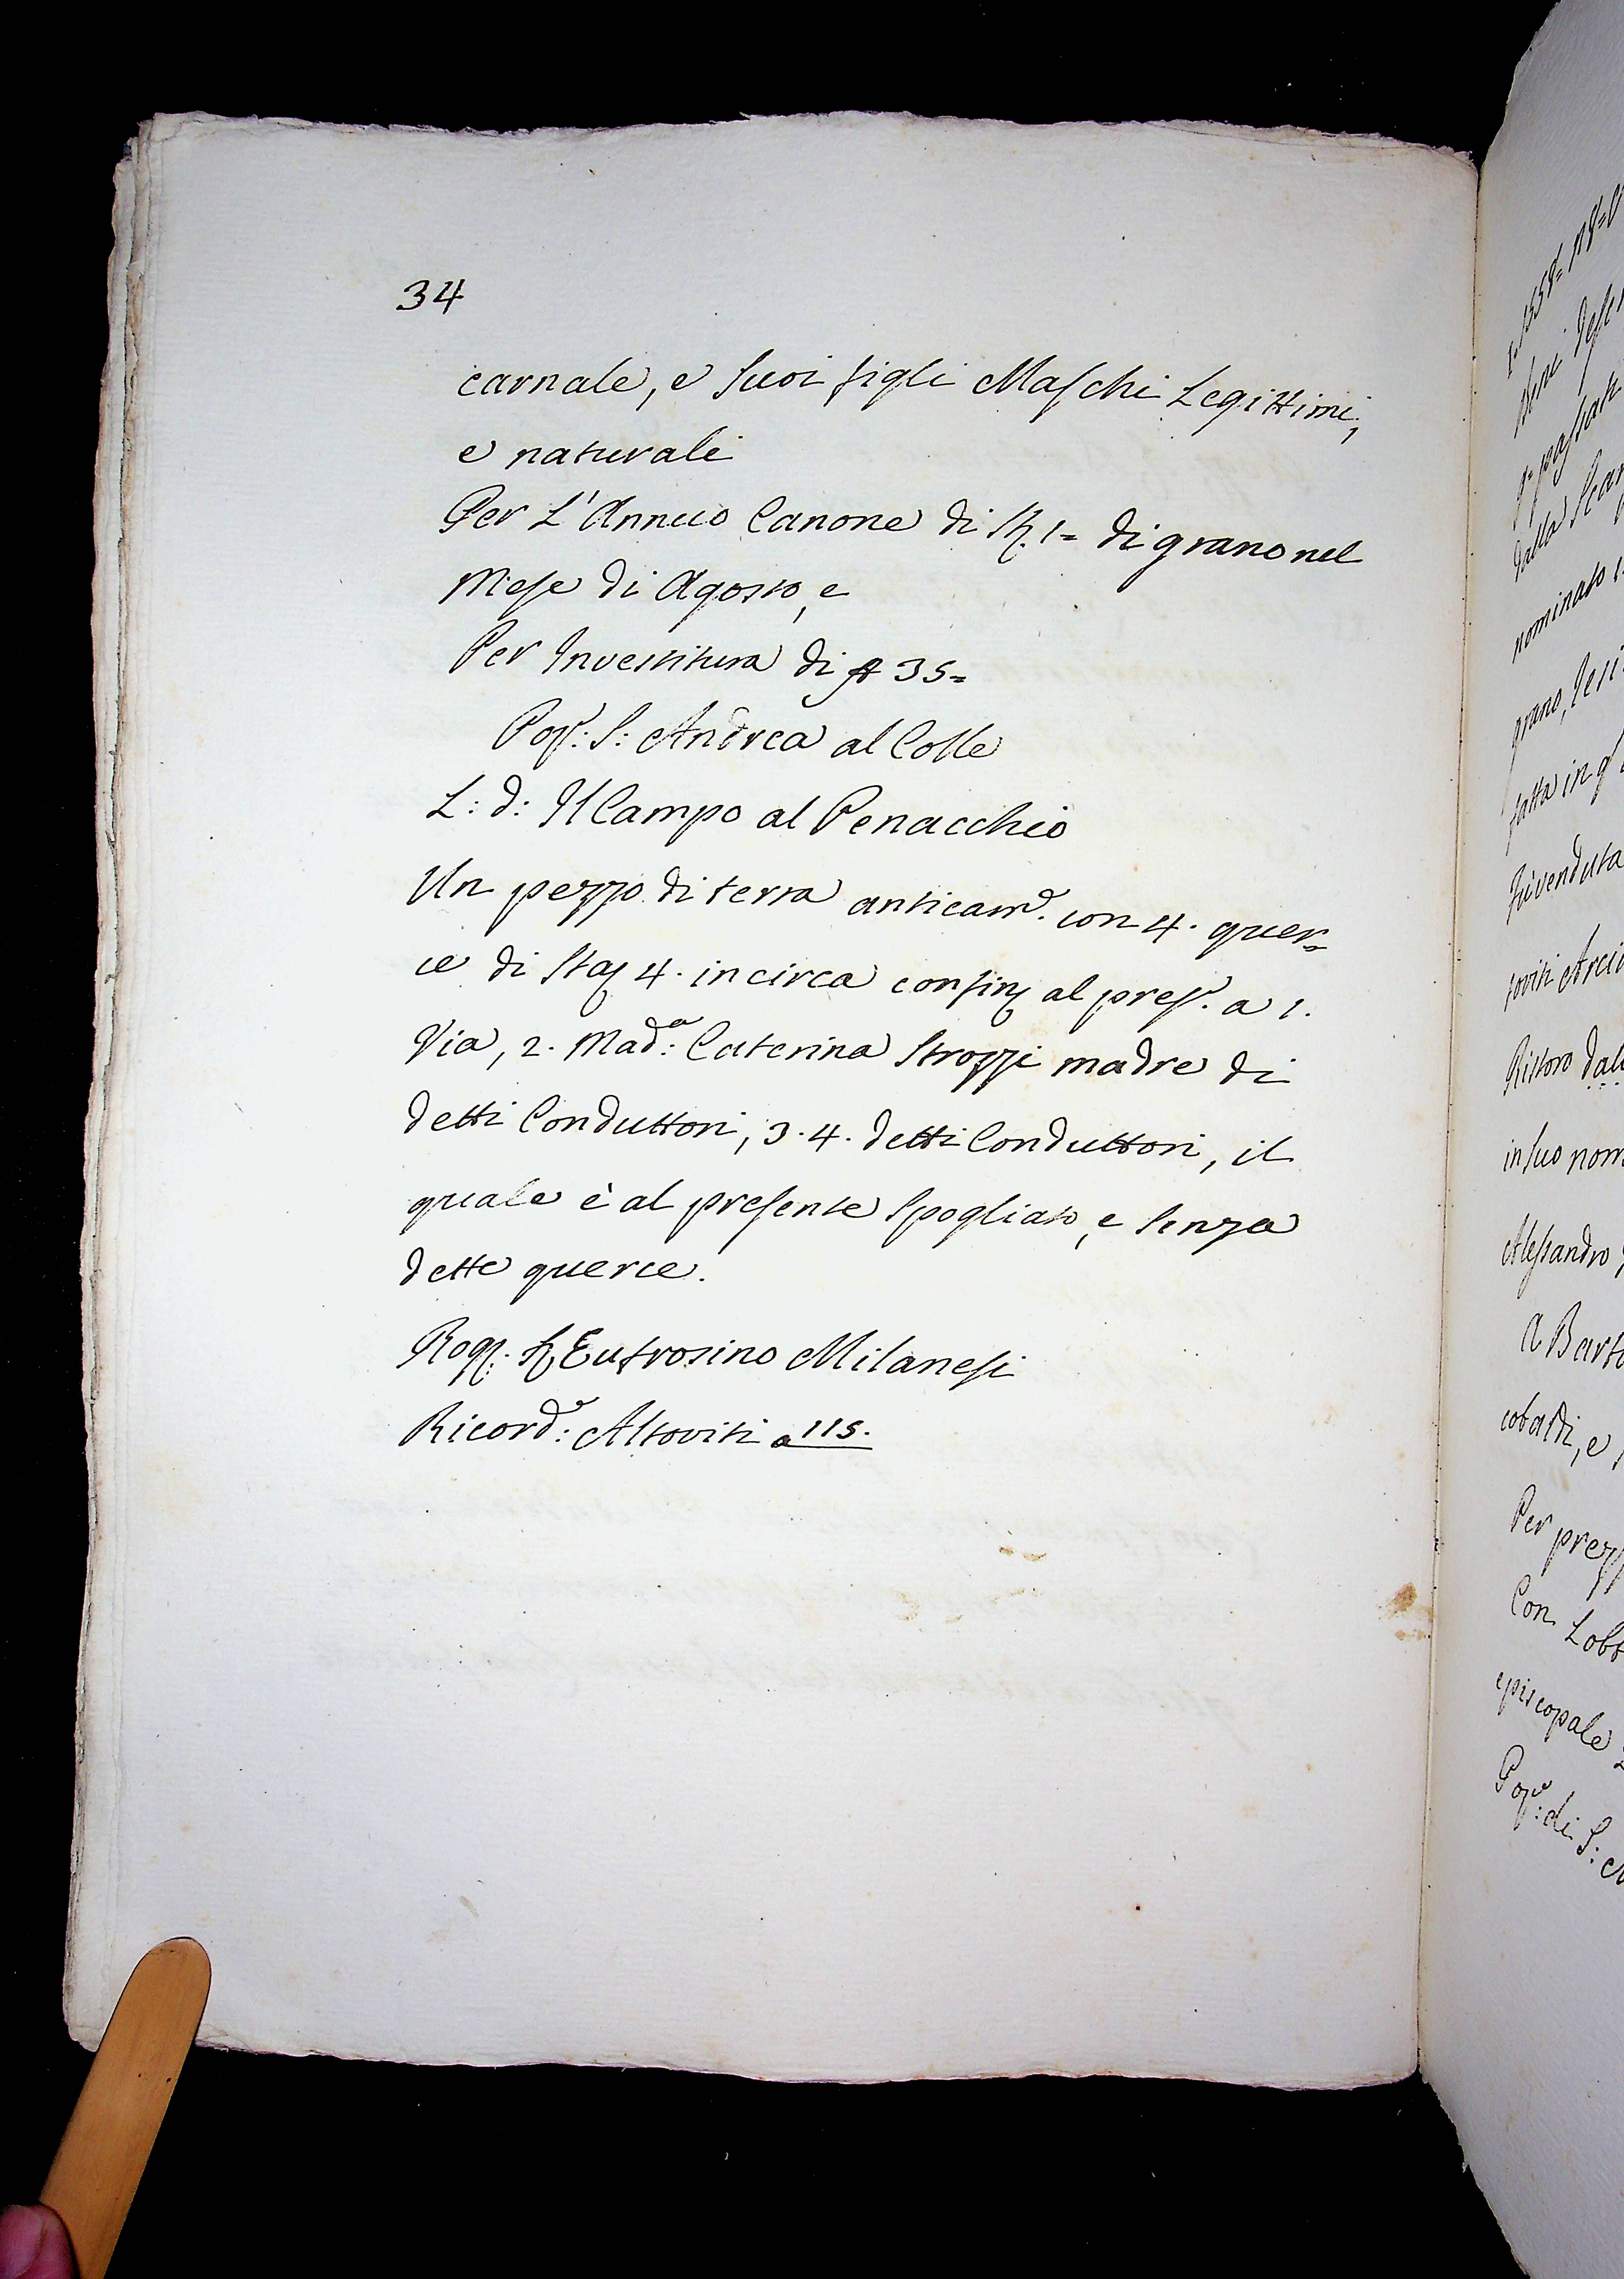 34
carnale, e Suoi figli Maschi Legittimi,
e naturali
Per L'Annuo Canone di St. 1= di grano nel
Mese di Agosto, e
Per Investitura di 35=
Pop.: S: Andrea al Colle
L: d: Il Campo al Penacchio
Un pezzo di terra anticam.e con 4. quer=
ce di Staj 4. in circa confinj al pres.e a 1.
Via, 2. Mad.a: Caterina Strozzi madre di
detti Conduttori, 3. 4. detti Conduttori, il
quale è al presente Spogliato, e Senza
dette querce.
Rog: Eufrosino Milanesi
Ricord.e: Altoviti a 115.
nominato
grano,
fatta in
Rivenduta
Ristoro dal
in suo nom
Alessandro
A Bart
cobaldi, e
Per prezz
Con Lobb
episcopale
Pop.e: di S: